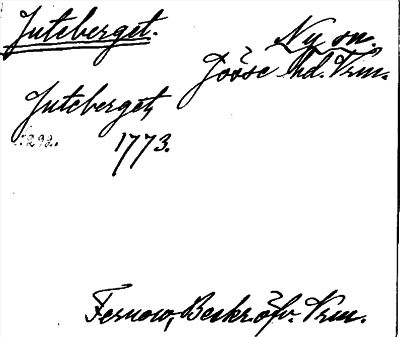 Juteberget.
Ny sn.
Jösse hd. Vrm.
Juteberget,
s. 292.
1773.
Fernow, Beskr. öfv. Vrm.